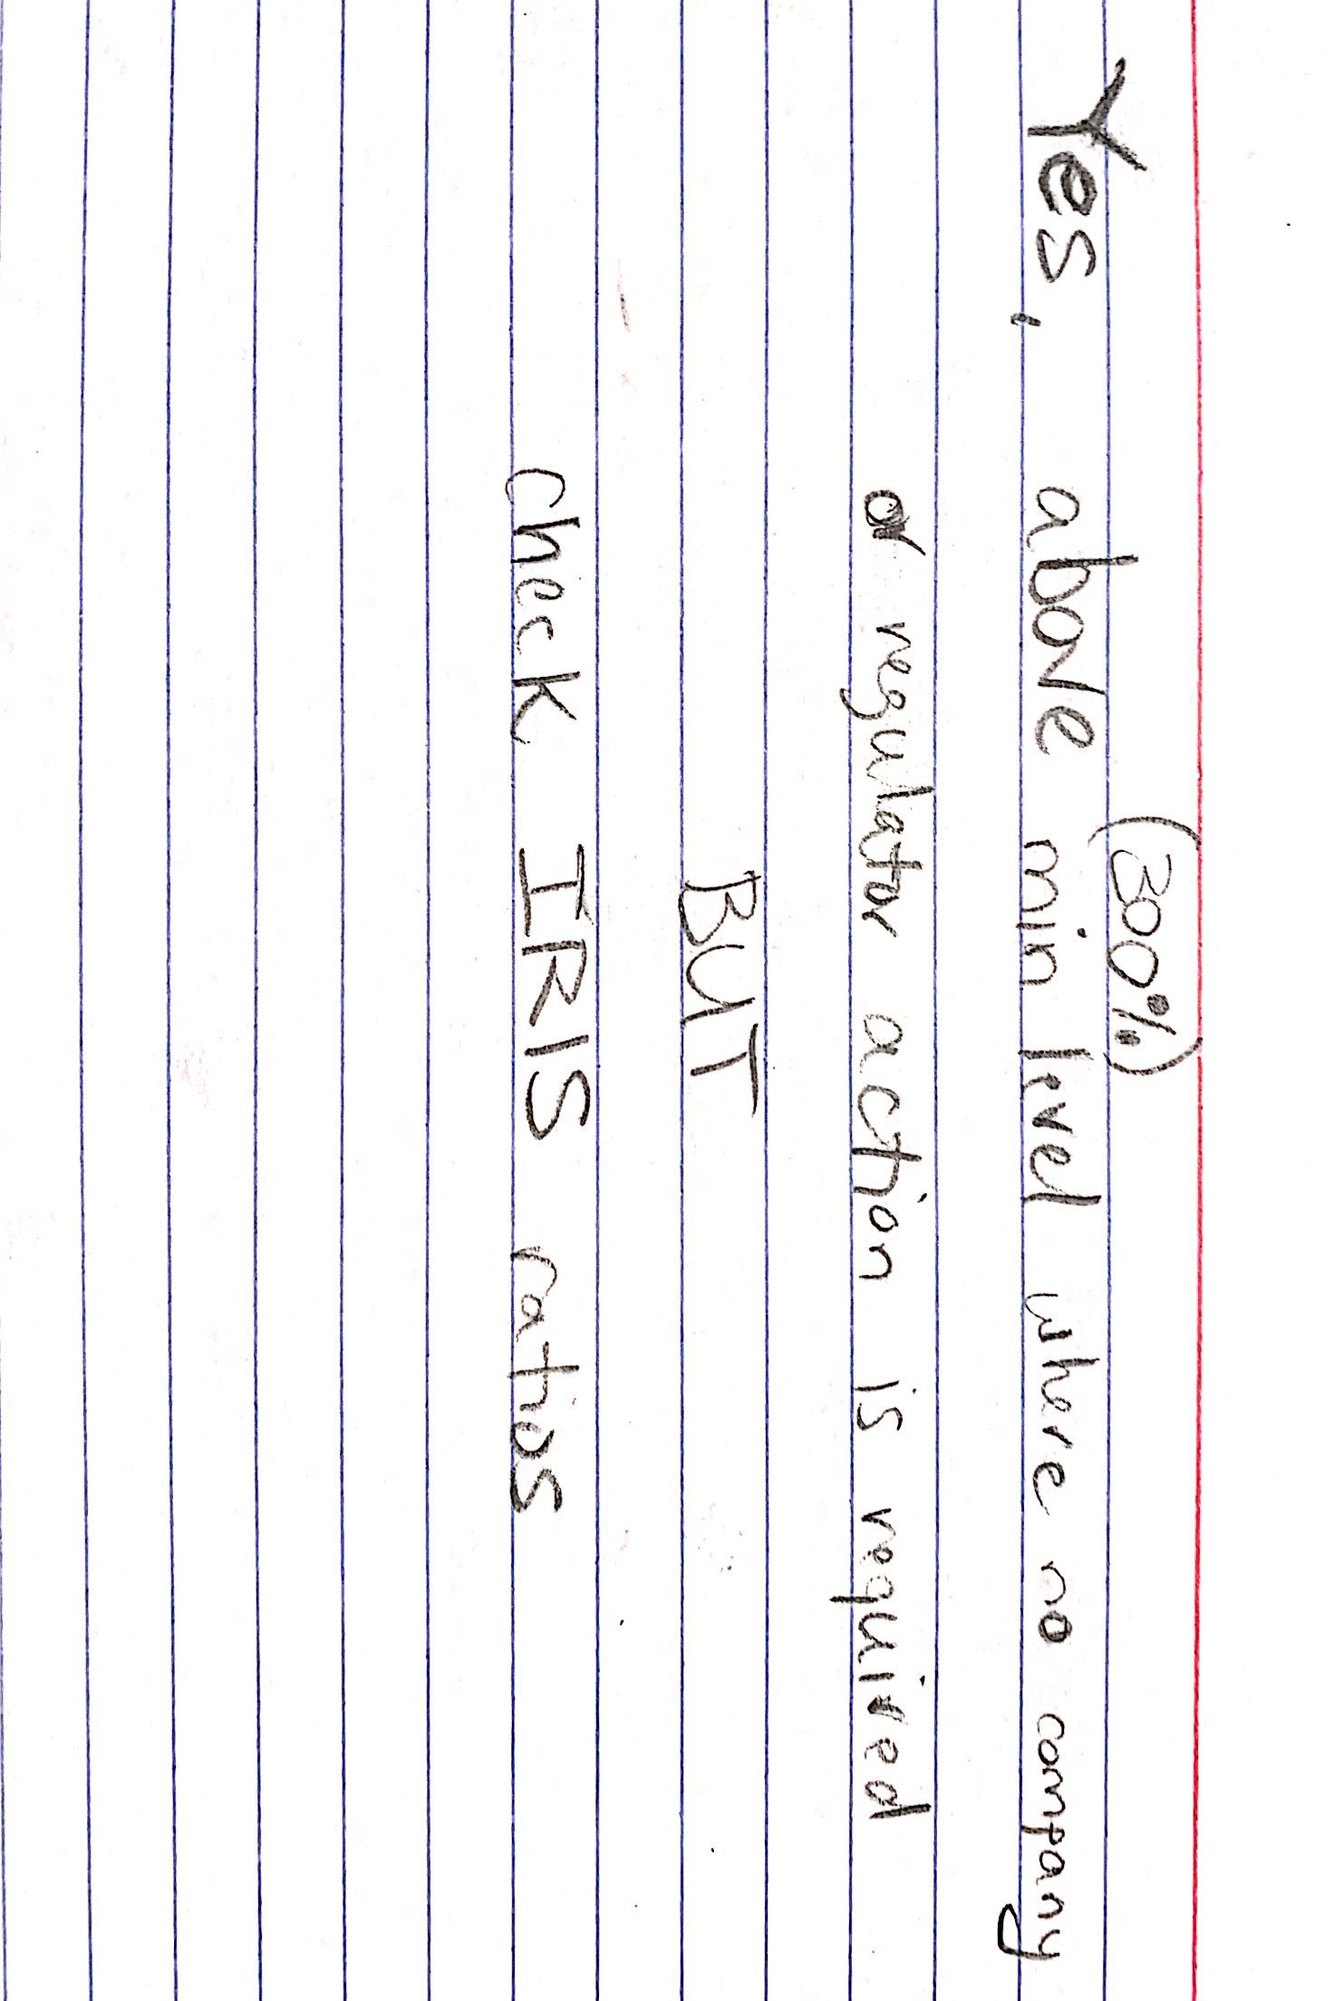 (300%)
Yes, above min level where no company
or regulator action is required
BUT
check IRIS ratios